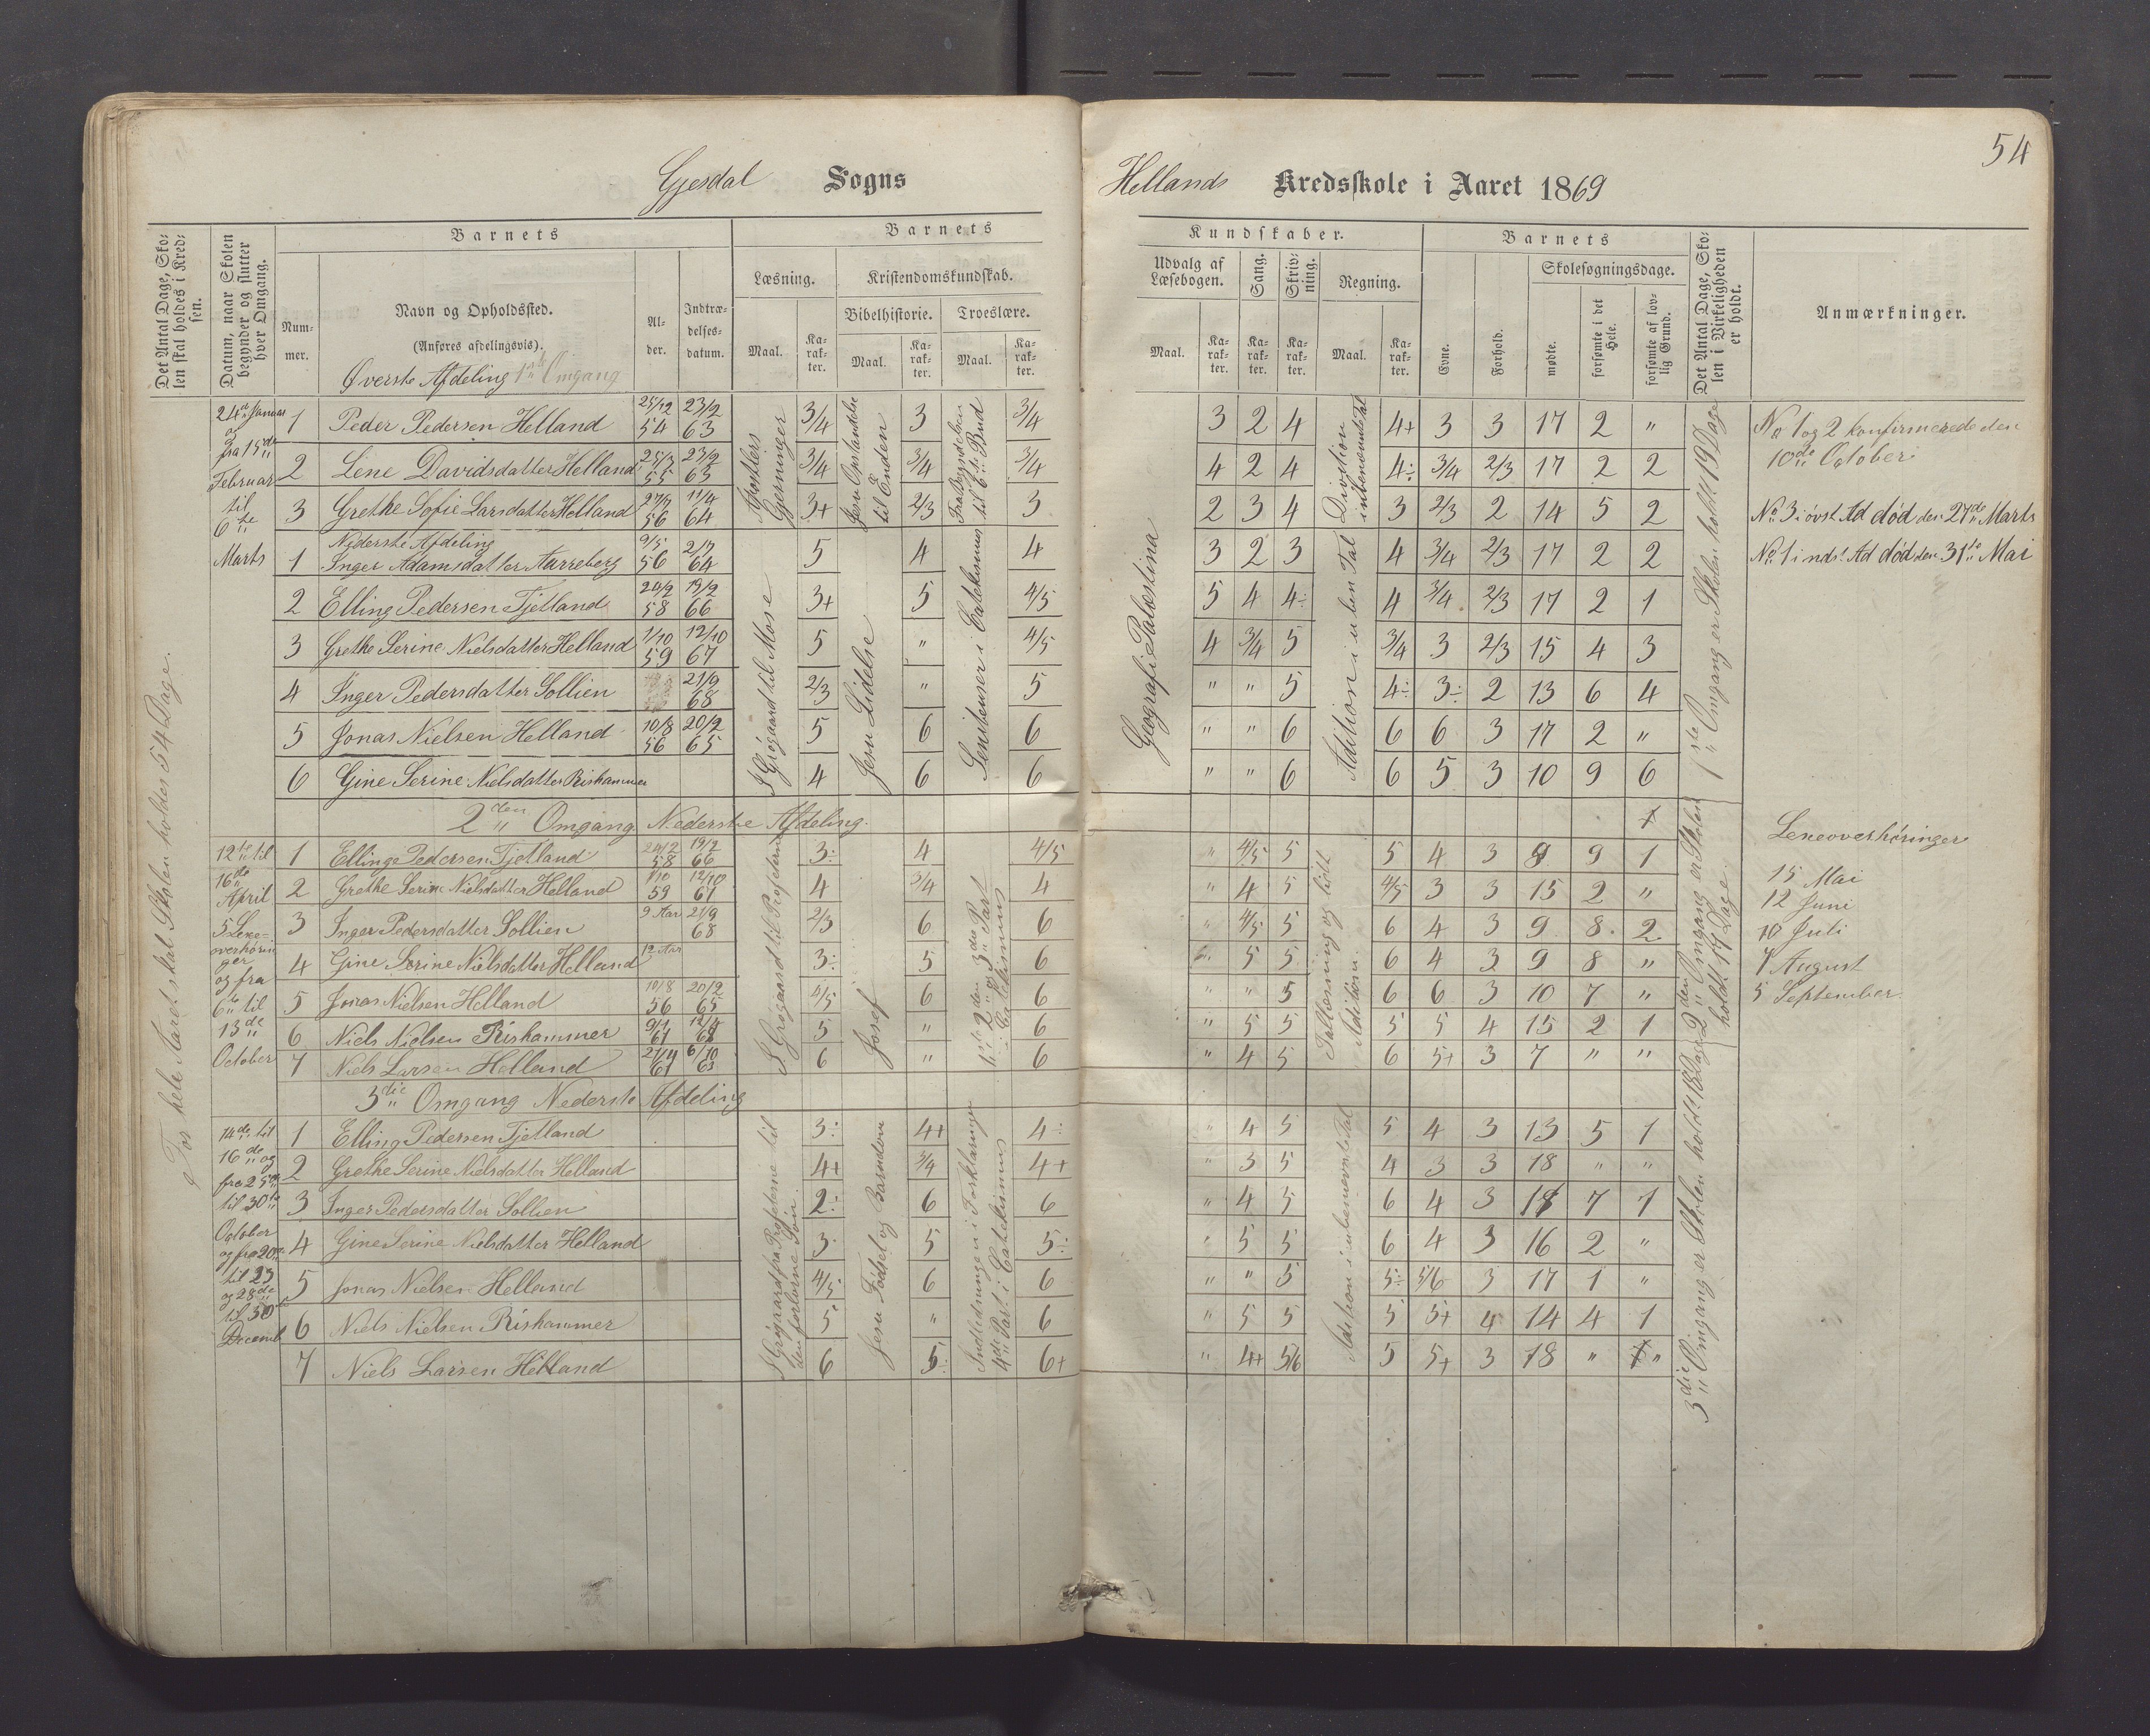 54
Gjesdal Sogns
Hellands Kredsskole i Aaret 1869
Det Antal Dage, Skolen skal holdes i Kredsen.
Datum, naar Skolen begynder og slutter hver Omgang.
Barnets
Nummer.
Navn og Opholdssted.
(Anføres afdelingsvis).
Øverste Afdeling 1ste Omgang
Alder.
Indtrædelsesdatum.
Barnets
Læsning.
Maal.
Karakter.
Kristendomskundskab.
Bibelhistorie.
Maal.
Karakter.
Troeslære.
Maal.
Karakter.
Kundskaber.
Udvalg af Læsebogen.
Maal.
Karakter.
Sang.
Karakter.
Skrivning.
Karakter.
Regning.
Maal.
Karakter.
Barnets
Evne.
Forhold.
Skolesøgningsdage.
mødte.
forsømte i det Hele.
forsømte af lovlig Grund.
Det Antal Dage, Skolen i Virkeligheden er holdt.
Anmærkninger.
For hele Aaret skal Skolen holdes 54 Dage.
24de Januar og fra 15de Februar til 6te Marts
1 Peder Pedersen Helland 25/12 54 23/2 63 3/4 3 3/4 3 2 4 4+ 3 3 17 2 "
2 Lene Davidsdatter Helland 25/3 55 23/2 63 3/4 3/4 3/4 4 2 4 4÷ 3/4 2/3 17 2 2
3 Grethe Sofie Larsdatter Helland 27/7 56 11/4 64 3+ 2/3 3 2 3 4 3 2/3 2 14 5 2
Nederste Afdeling
1 Inger Adamsdatter Aarreberg 9/5 56 2/7 64 5 4 4 3 2 3 4 3/4 2/3 17 2 2
2 Elling Pedersen Tjetland 24/2 58 19/2 66 3+ 5 4/5 5 4 4÷ 4 3/4 2/3 17 2 1
3 Grethe Serine Nielsdatter Helland 1/10 59 12/10 67 5 " 4/5 4 3/4 5 3/4 3 2/3 15 4 3
4 Inger Pedersdatter Sollien 21/9 68 2/3 " 5 " " 5 4÷ 3÷ 2 13 6 4
5 Jonas Nielsen Helland 10/8 56 20/2 65 5 6 6 " " 6 6 6 3 17 2 "
6 Gine Serine Nielsdatter Rishammer 4 6 6 " " 6 6 5 3 10 9 6
Apostlers Gjerninger
Jesu Opstandelse til Enden
Fra Begyndelsen til 6te Bud
Divition i ubenævnte Tal
Geografi Palæstina
Grøgaard til Mose
Jesu Lidelse
i Catekismus
Adition i uben Tal
1ste Omgang er Skolen holdt 19 Dage
No 1 og 2 konfirmerede den
10de October
No 3 i øvst Ad død den 27de Marts
No 1 i ndst Ad død den 31te Mai
2den Omgang Nederste Afdeling.
12te til 16de April 5 Lexeoverhøringer og fra 6te til 13de October
1 Elling Pedersen Tjetland 24/2 58 19/2 66 3÷ 4 4/5 " 4/5 5 5 4 3 9 9 1
2 Grethe Serine Nielsdatter Helland 1/10 59 12/10 67 4 3/4 4 " 4 5 4/5 3 3 15 2 "
3 Inger Pedersdatter Sollien 9 Aar 21/9 68 2/3 6 6 " 4/5 5 6 4 3 9 8 2
4 Gine Serine Nielsdatter Helland 12 Aar 3÷ 5 6 5 5 6 4 3 9 8 "
5 Jonas Nielsen Helland 10/8 56 20/2 65 4/5 6 6 " " 5 6 6 3 10 7 "
6 Niels Nielsen Rishammer 9/1 61 5 " 6 " 5 5 5 5 4 15 2 1
7 Niels Larsen Helland 61 6/10 6 " 6 " 4 5 6 5+ 3 7 " "
Grøgaard til Profeterne
Josef
Tallæsning og lidt Adition
2den Omgang er Skolen holdt 17 Dage
Lexeoverhøringer
15 Mai
12 Juni
10 Juli
7 August
5 September
3die Omgang Nederste Afdeling
14de til 16de og fra 25de til 30te October og fra 20 til 23 og 28de til 30 Decemb
1 Elling Pedersen Tjetland 3÷ 4+ 4÷ " 4 5 5 4 3 13 5 1
2 Grethe Serine Nielsdatter Helland 4+ 3/4 4+ " 3 5 4 3 3 18 " "
3 Inger Pedersdatter Sollien 2÷ 6 6 " 4 5 6 4 3 11 7 1
4 Gine Serine Nielsdatter Helland 3 5 5÷ " 5 5 6 4 3 16 2 "
5 Jonas Nielsen Helland 4/5 6 6 " " 5 5÷ 5/6 3 17 1 "
6 Niels Nielsen Rishammer 5 " 6 " 5 5 5 5+ 4 14 4 1
7 Niels Larsen Helland 6 5÷ 6+ " 4+ 5/6 5 5+ 3 18 " "
Grøgaard fra Profeterne til den forlorne Søn
Jesu Fødsel og Barndom
Indledningen i Forklaringen 4de Part i Catekismus
Adition i ubenævnte Tal
3die Omgang er Skolen holdt 18 Dage